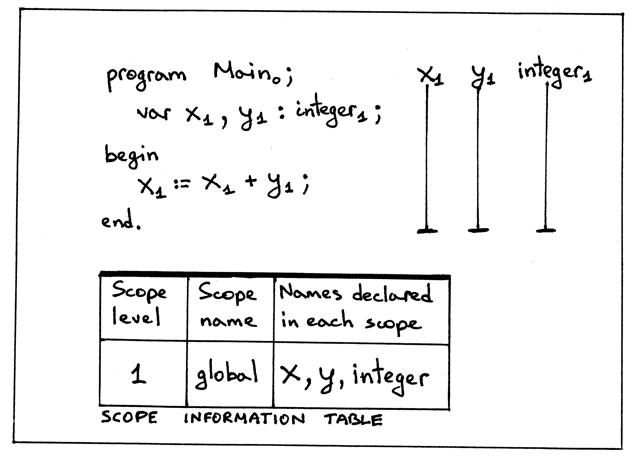 program Main₀;
var x₁, y₁ : integer₁;
begin
x₁ := x₁ + y₁;
end.
x₁ y₁ integer₁
Scope level
Scope name
Names declared in each scope
1
global
x, y, integer
SCOPE INFORMATION TABLE